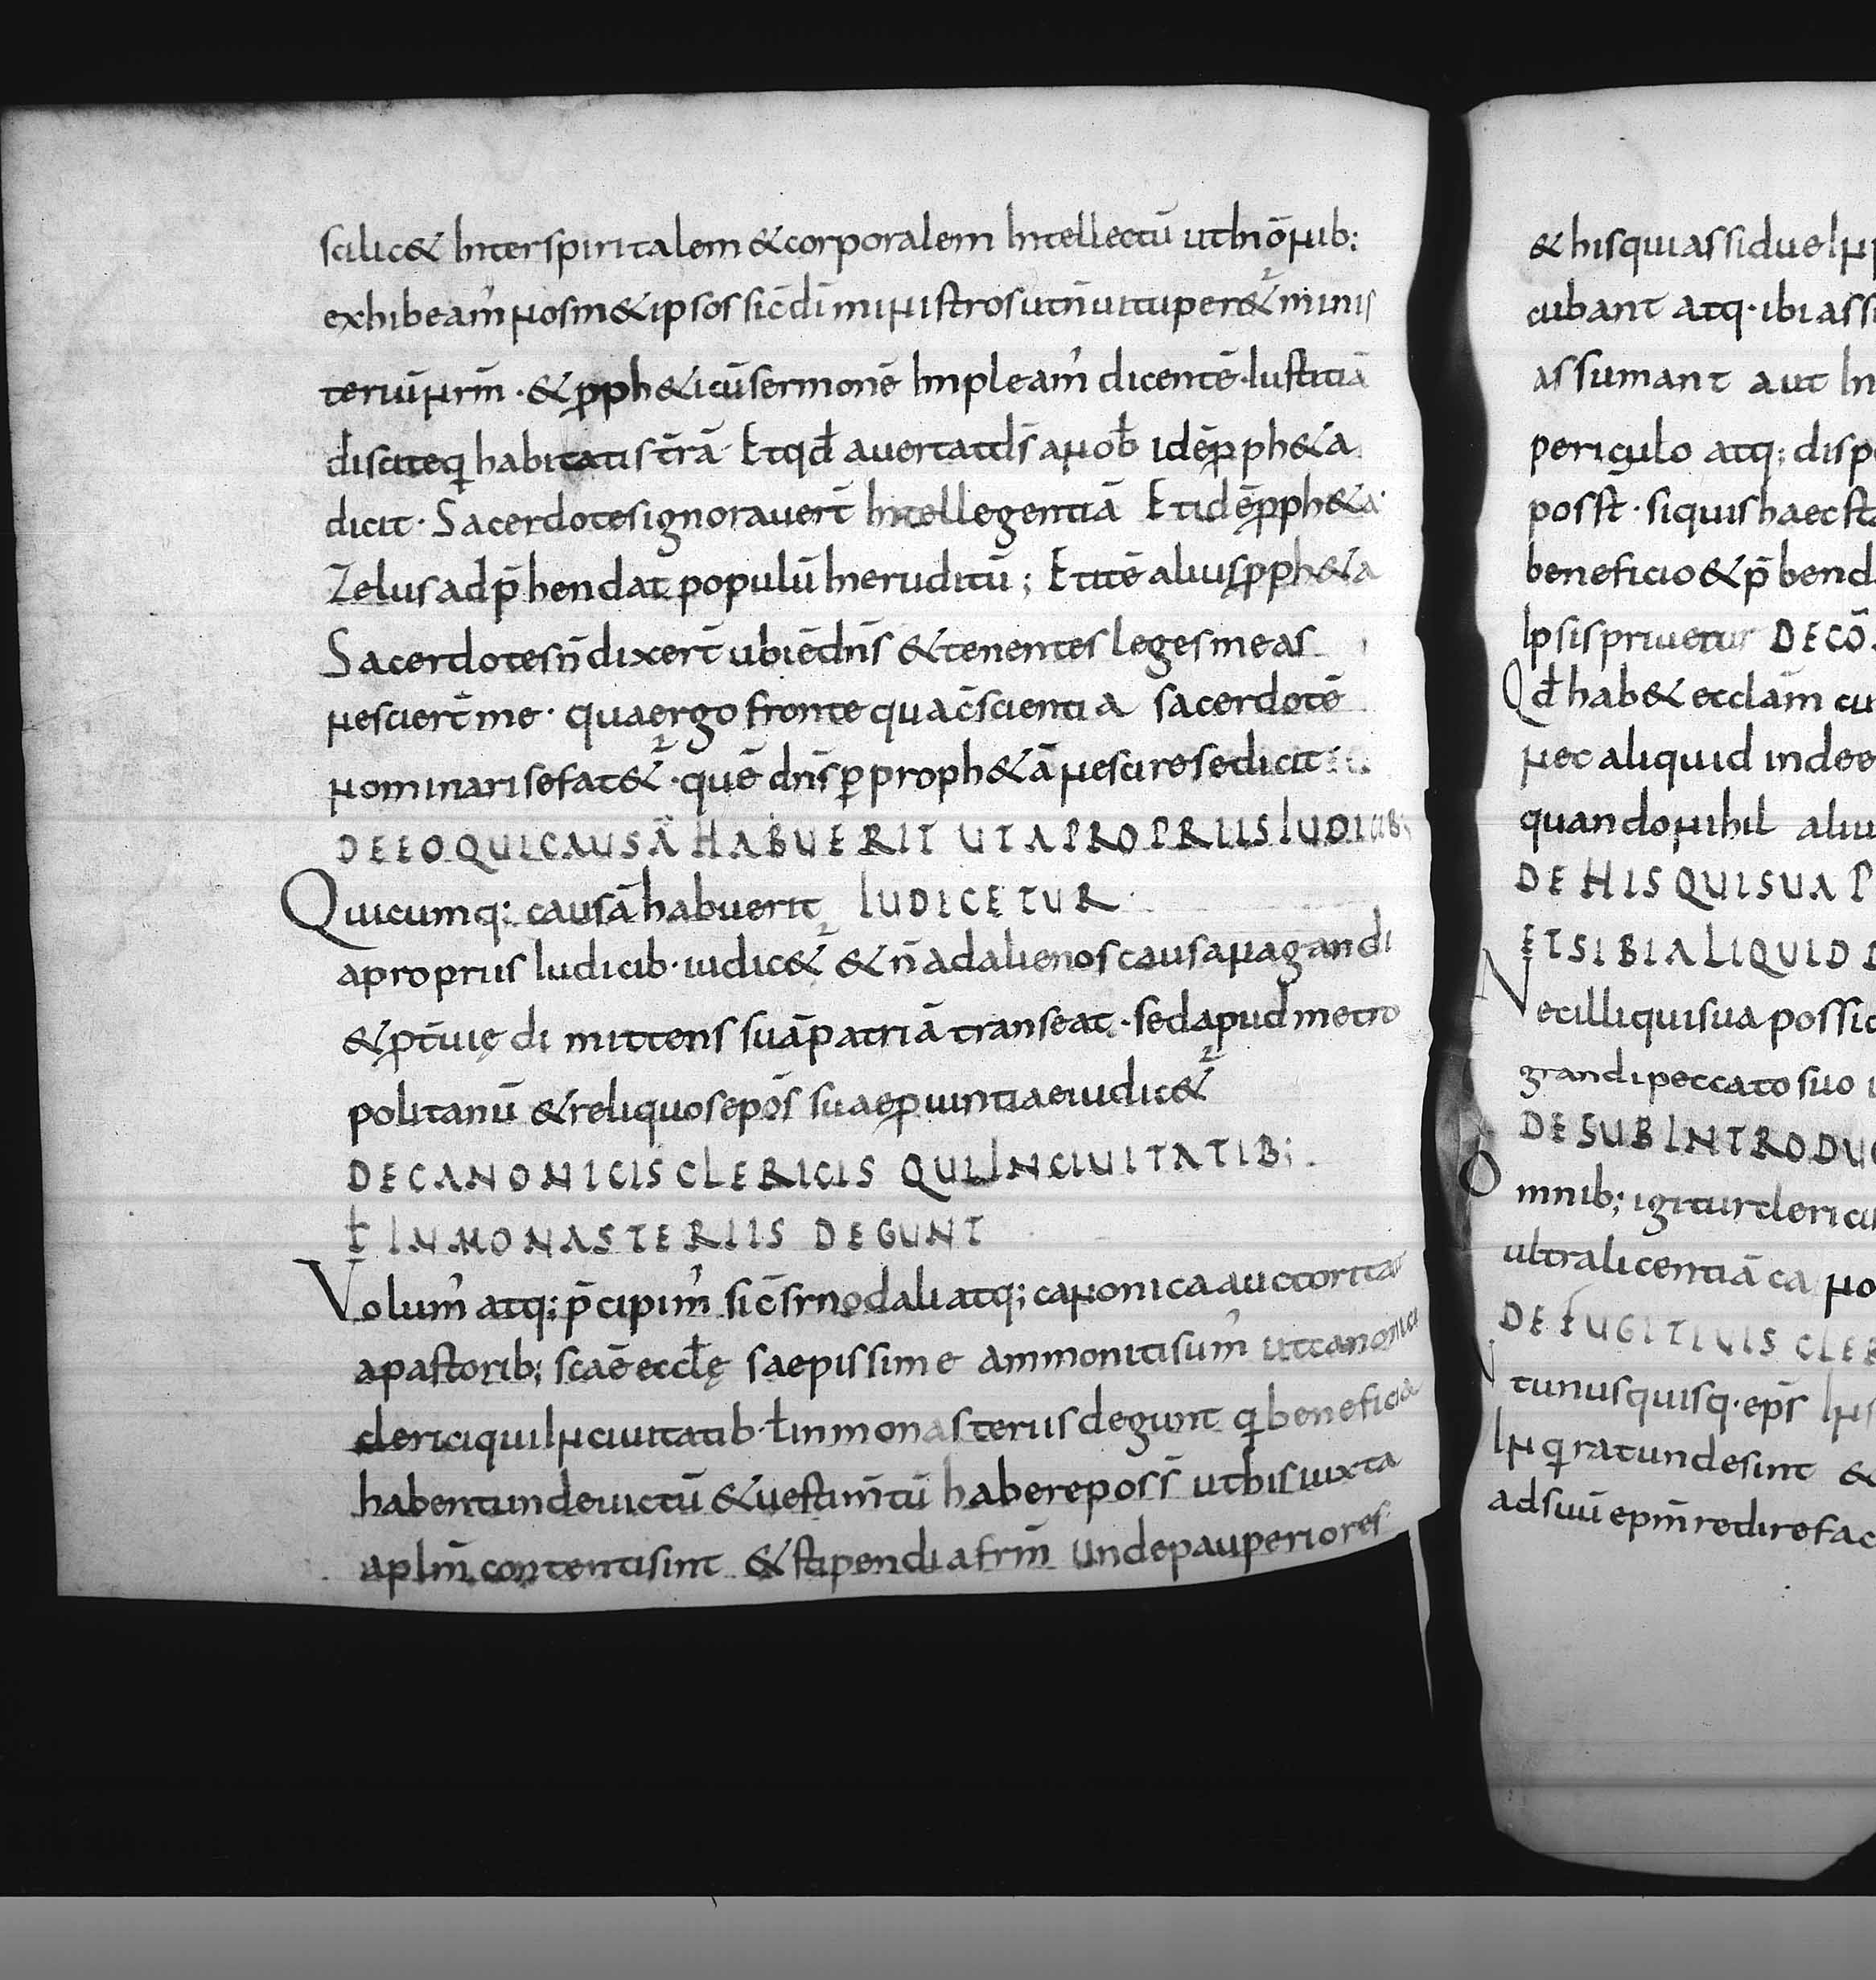 scilic& Inter spiritalem & corporalem Intellectū ut In ōnib;
exhibeam' nosm&ipsos sic̄ di ministros ut n̄ uituper& minis
teriū nrm̄ · & pph&icū sermonē Impleam' dicentē · Iustitiā
discite q habitatis tr̄ā Et qđ auertat ds̄ a nob̄ idē pph&a
dicit · Sacerdotes ignorauert̄ Intellegentiā Et idē pph&a
Zelus adp̄hendat populū Ineruditū ; Et itē alius pph&a
Sacerdotes n̄ dixert̄ ubi ē dn̄s & tenentes leges meas
nesciert̄ me · qua ergo fronte qua c̄scientia sacerdotē
nominari se fat& · quē dn̄s p proph&ā nescire se dicit
DE EO QUI CAUSĀ HABUERIT UT A PROPRIIS IUDICIB;
Quicumq; causā habuerit IUDICETUR
a propriis Iudicib · iudic& & n̄ ad alienos causa nagandi
& pt̄uię dimittens suā patriā transeat · sed apud metro
politanū & reliquos epōs suae puintiae iudic&
DE CANONICIS CLERICIS QUI IN CIUITATIB;
ł IN MONASTERIIS DEGUNT
Volum' atq; p̄cipim' sic̄ sinodali atq; canonica auctoritat
a pastorib; scāe eccłę saepissime ammoniti sum' ut canonici
clerici qui In ciuitatib · ł in monasteriis degunt q beneficia
habent unde uictū & uestim̄tū habere poss̄ ut his iuxta
aplm̄ contenti sint & stipendia frm̄ Unde pauperiores
& his qui assidue In
cubant atq · ibi assi
assumant aut In
periculo atq; disp
posst̄ · si quis haec sta
beneficio & p̄bend
Ipsis priuetur DE CŌ
Qđ hab& ecclām cu
nec aliquid inde e
quando nihil aliu
DE HIS QUI SUA P
ET SIBI ALIQUID D
Nec illi qui sua possid
grandi peccato suo
DE SUBINTRODUC
Omnib; igitur clerici
ultra licentiā canō
DE FUGITIUIS CLER
Ut unusquisq · eps̄ In s
In qrat unde sint &
ad suū epm̄ redire fac